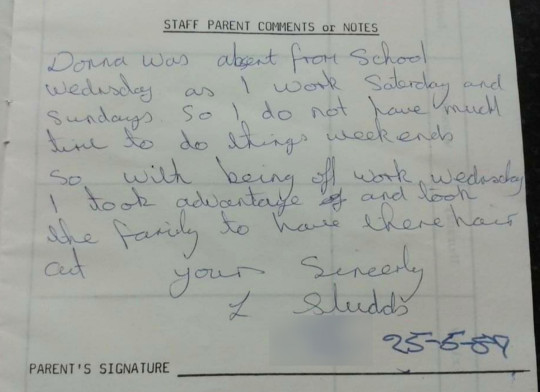 STAFF PARENT COMMENTS or NOTES
Donna was absent from School
wedusday as I work Saterday and
Sundays So I do not have much
time to do things weekends
So with being off work wednesday
I took advantage of and took
the family to have there hair
cut your Sincerly
L Studds
25-5-89
PARENT'S SIGNATURE